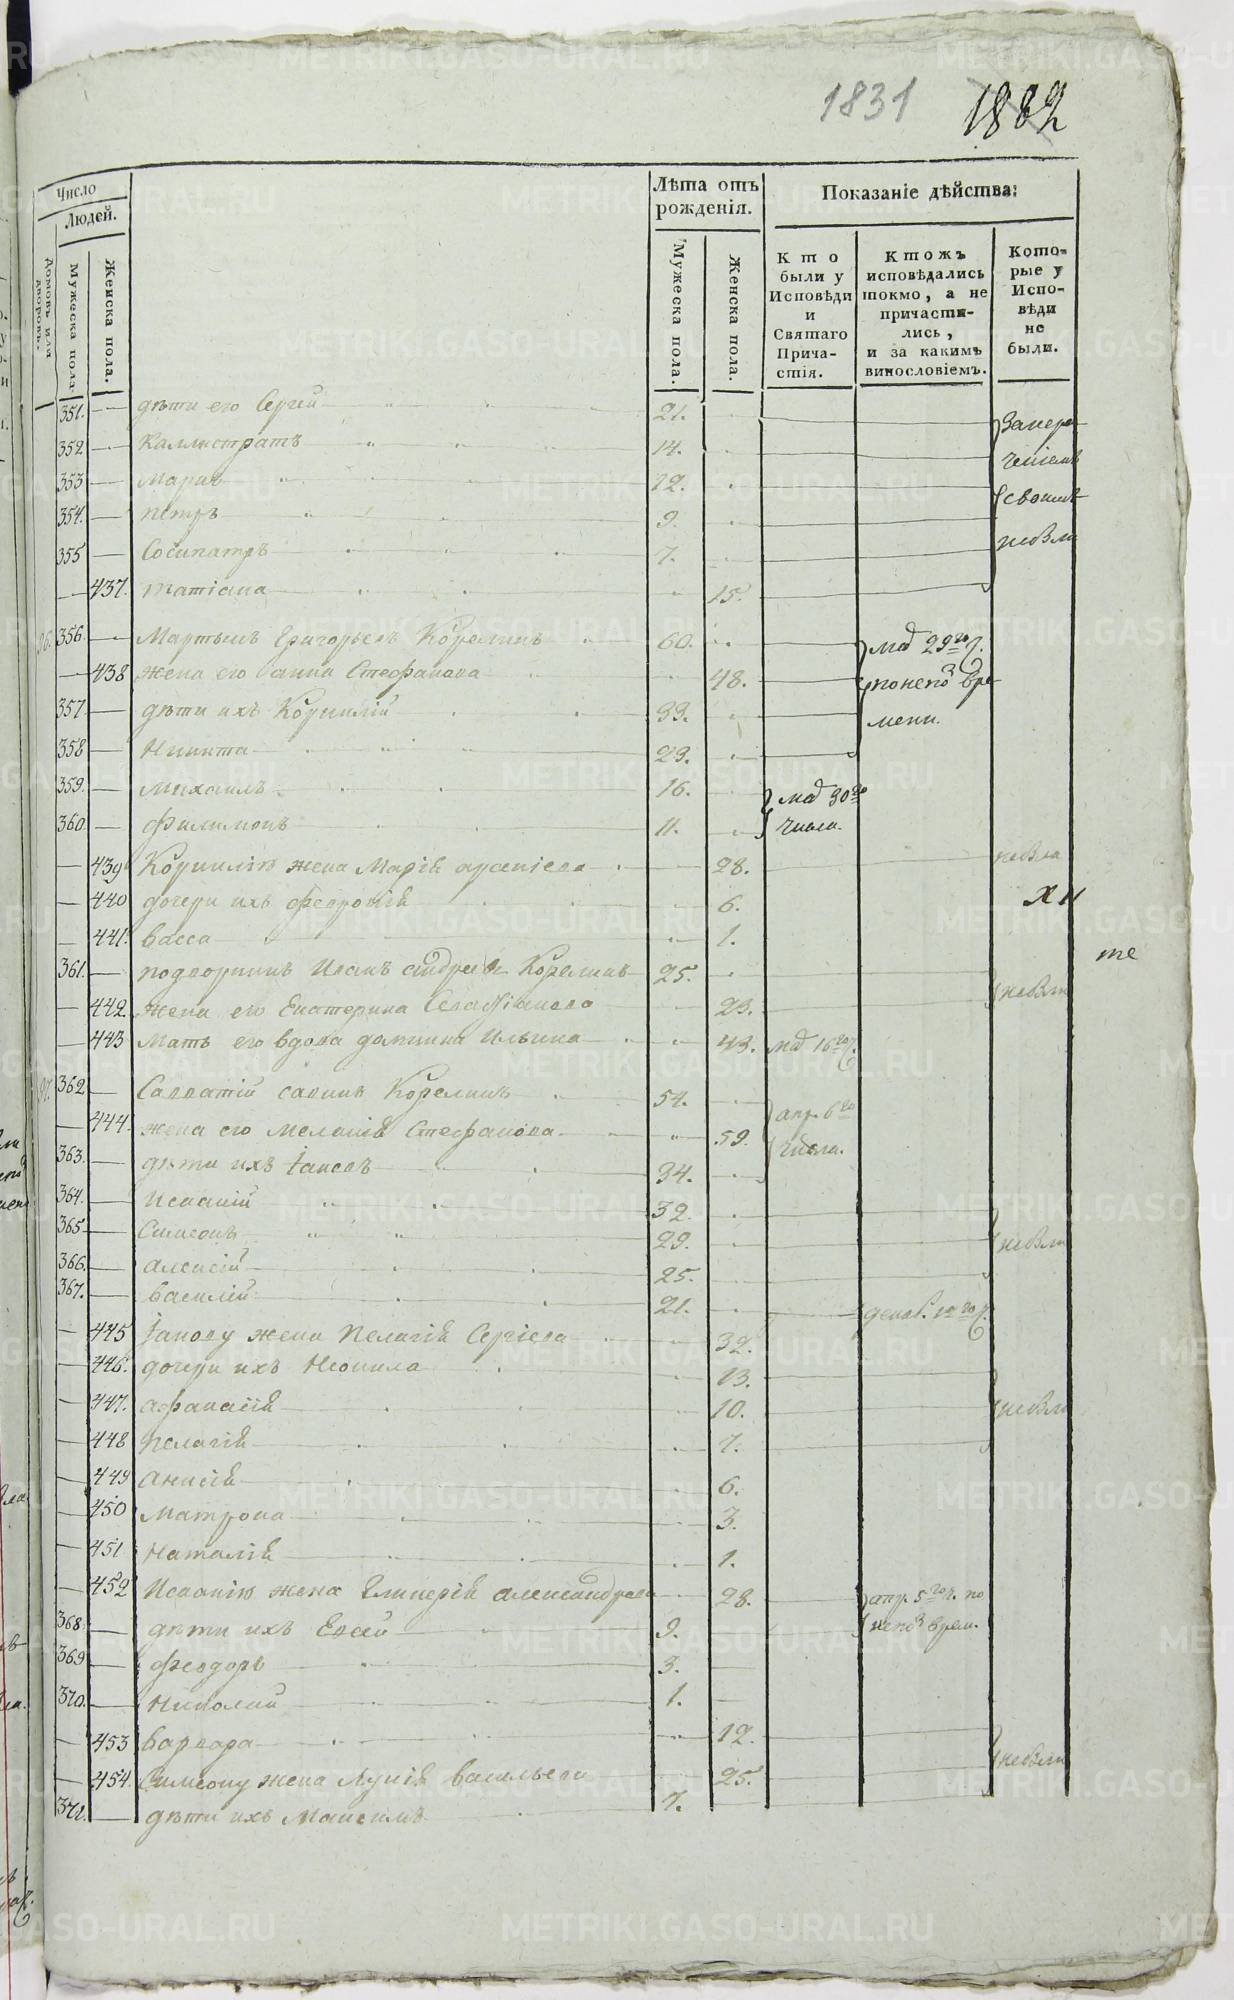 1831 1882
Число
Людей.
Домовъ или дворовъ.
Мужеска пола.
Женска пола.
Лѣта отъ рожденія.
Мужеска пола.
Женска пола.
Показаніе дѣйства:
Кто были у Исповѣди и Святаго Прича-стія.
Ктожъ исповѣдались токмо, а не причасти-лись, и за какимъ винословіемъ.
Кото-рые у Испо-вѣди не были.
351. дѣти его Сергій 21.
352 Каллистратъ 14.
353 Марин 12.
354. Петръ 9.
355 Сосипатръ 7.
437. Татіана 15.
своимъ
96. 356. Мартынъ Григорьевъ Корелинъ 60. мар 29го ч.
438 жена его Анна Стефанова 48. по непо вре
357. дѣти ихъ Корнилій 33. мени.
358 Никита 23.
359. Михаилъ 16. мар 30го
360. Филимонъ 11. числа.
439 Корнилію жена Марія Арсеніева 28.
440 дочери ихъ Феврошія 6.
441. Васса 1.
361. подворникъ Иванъ Андреевъ Корелинъ 25.
те
442. жена его Екатерина Севастіанова 23.
443 Мать его вдова Домнина Ильина 43. мар 16го ч.
97. 362 Савватій Савинъ Корелинъ 54. апр. 6го
444. жена его Меланія Стефанова 59. числа.
363. дѣти ихъ Іаковъ 34.
364. Исаакій 32.
365. Симеонъ 29.
366. Алексій 25.
367. Василій 21.
445 Іакову жена Пелагія Сергіева 32.
446. дочери ихъ Неонила 13.
447. Афанасія 10.
448 Пелагія 7.
449 Анисія 6.
450 Матрона 3.
451 Наталія 1.
452 Исаакію жена Гликерія Александрова 28. апр. 5го ч. по
368 дѣти ихъ Евсей 9. непо врем.
369 Феодоръ 3.
370. Николай 1.
453 Варвара 12.
454. Симеону жена Лукія Васильева 25.
371. дѣти ихъ Максимъ 7.
METRIKI.GASO-URAL.RU